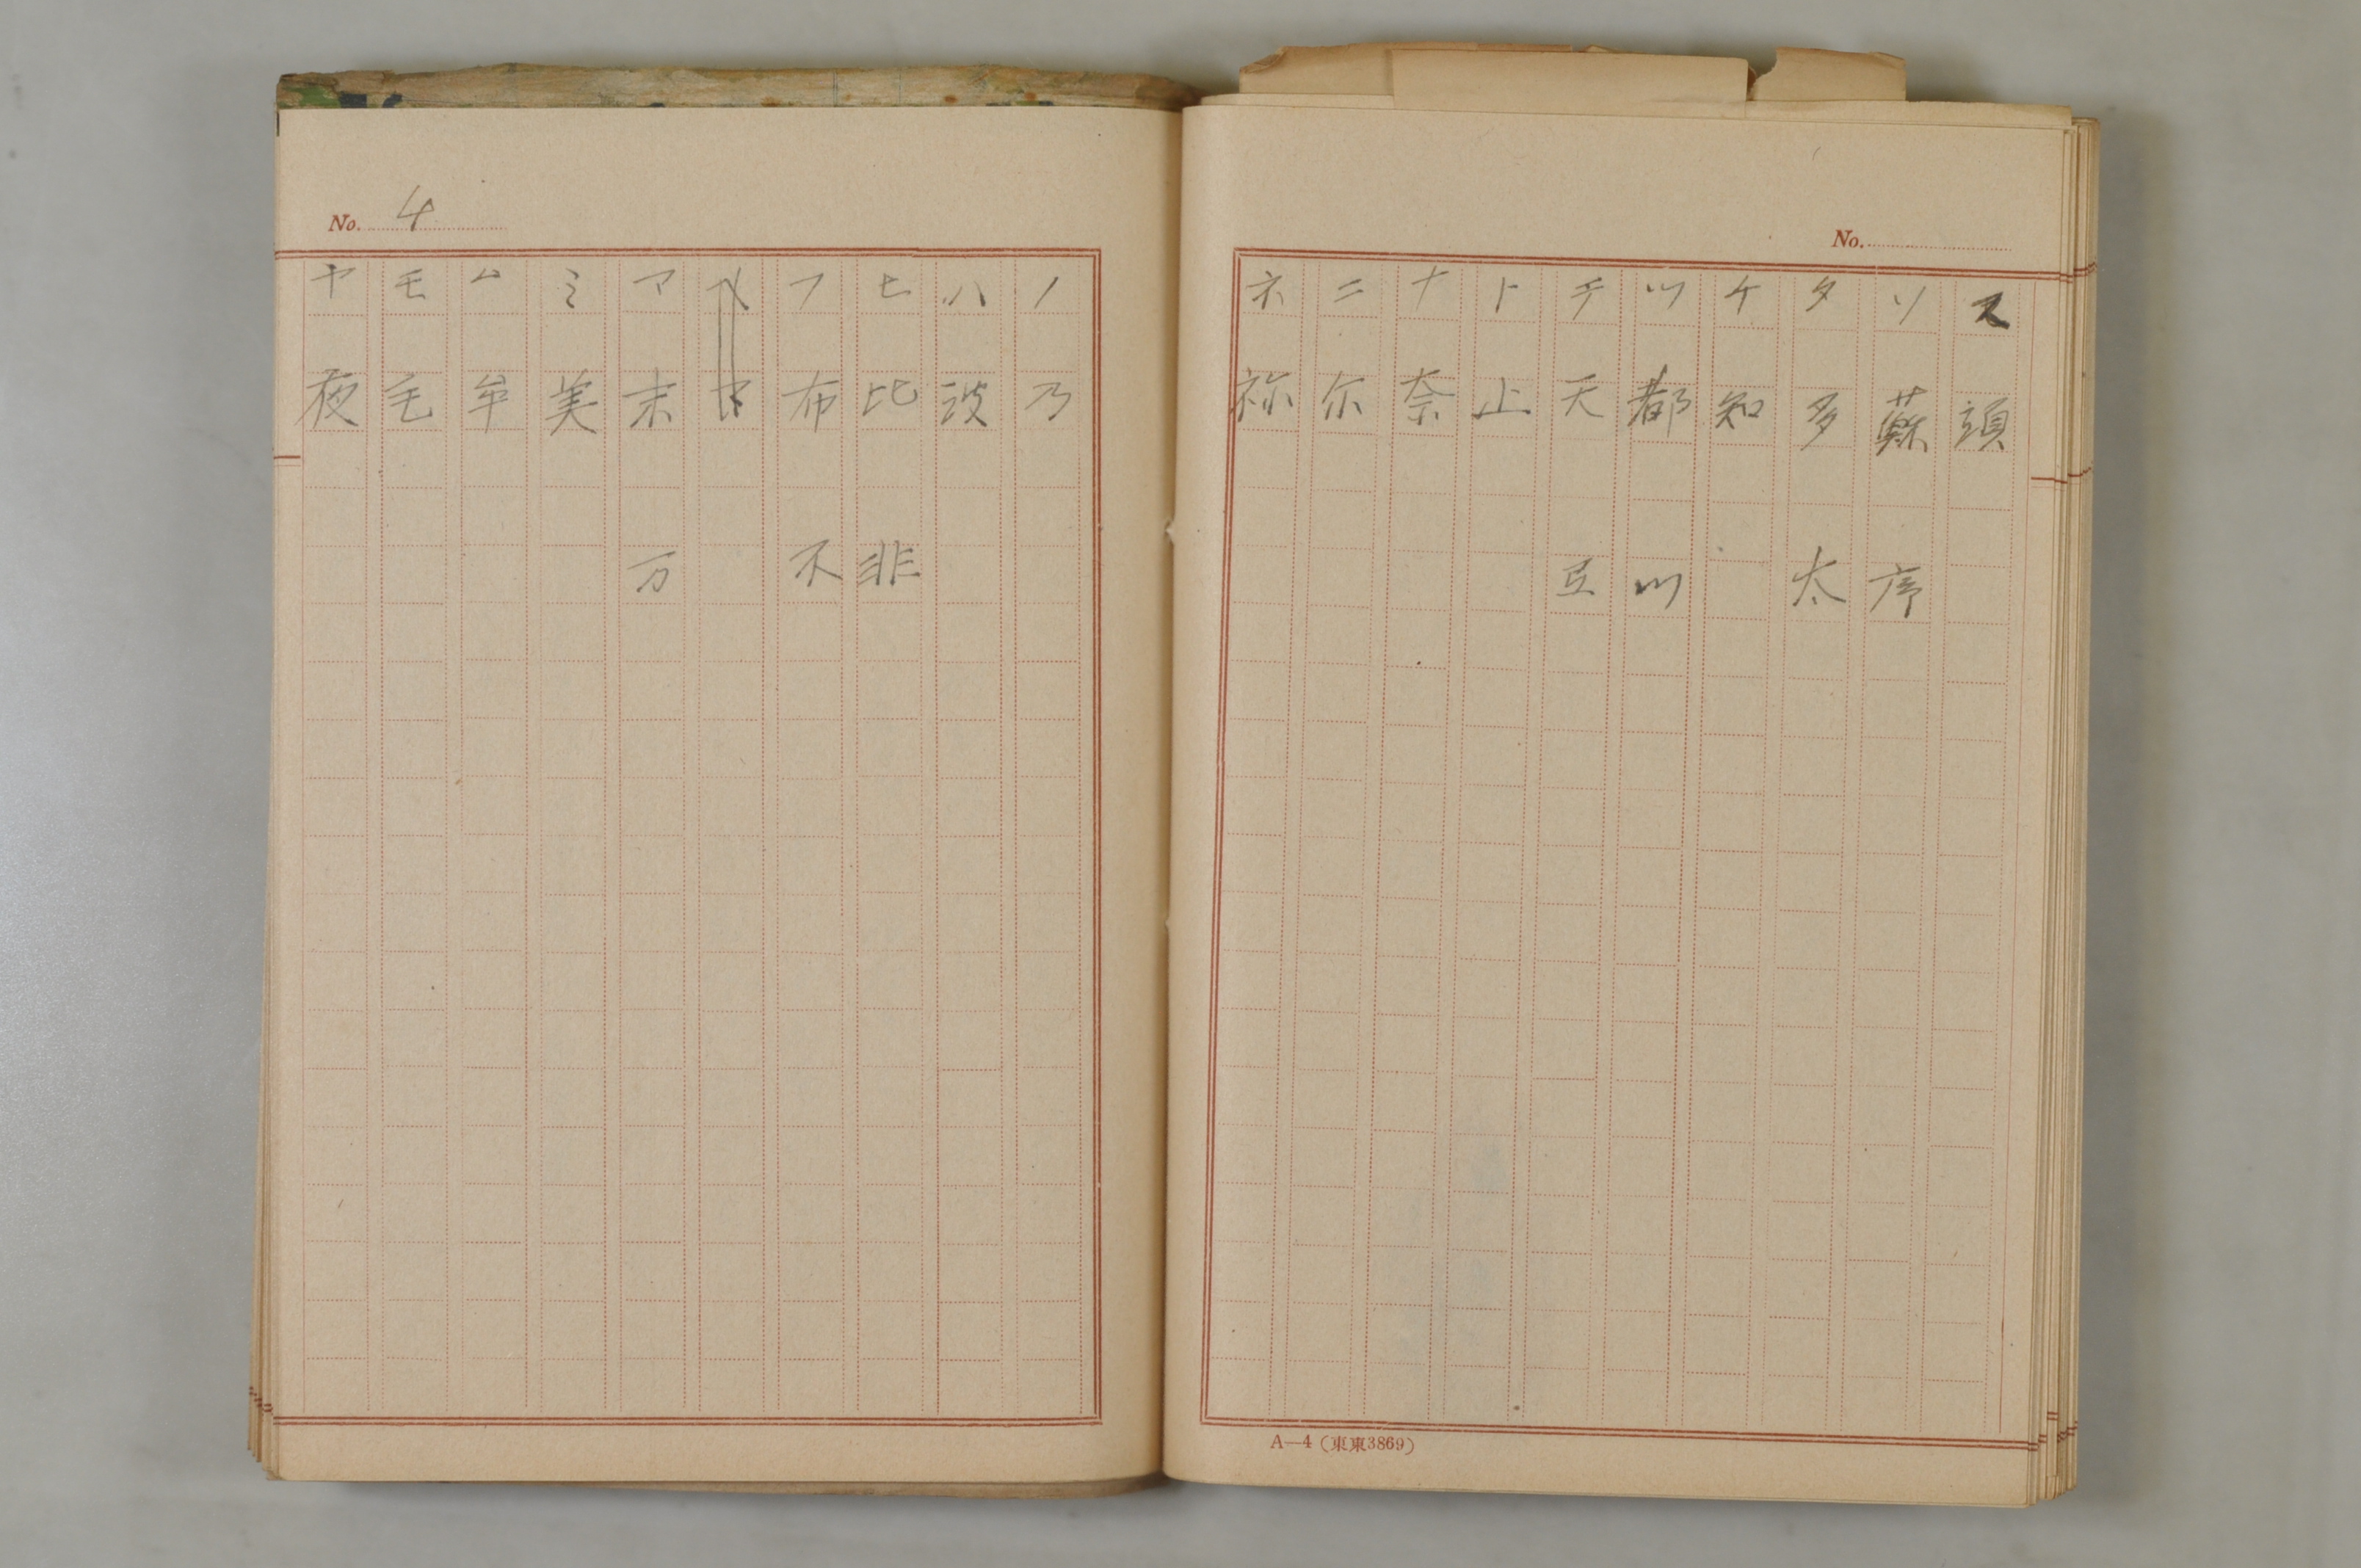 No.
ス 須
ソ 蘇 序
タ 多 太
ケ 知
ツ 都 川
テ 天
ト 止
ナ 奈
ニ 尓
ネ 祢
A—4（東東3869）
No. 4
ノ 乃
ハ 波
ヒ 比 非
フ 布 不
マ 末 万
ミ 美
ム 牟
モ 毛
ヤ 夜